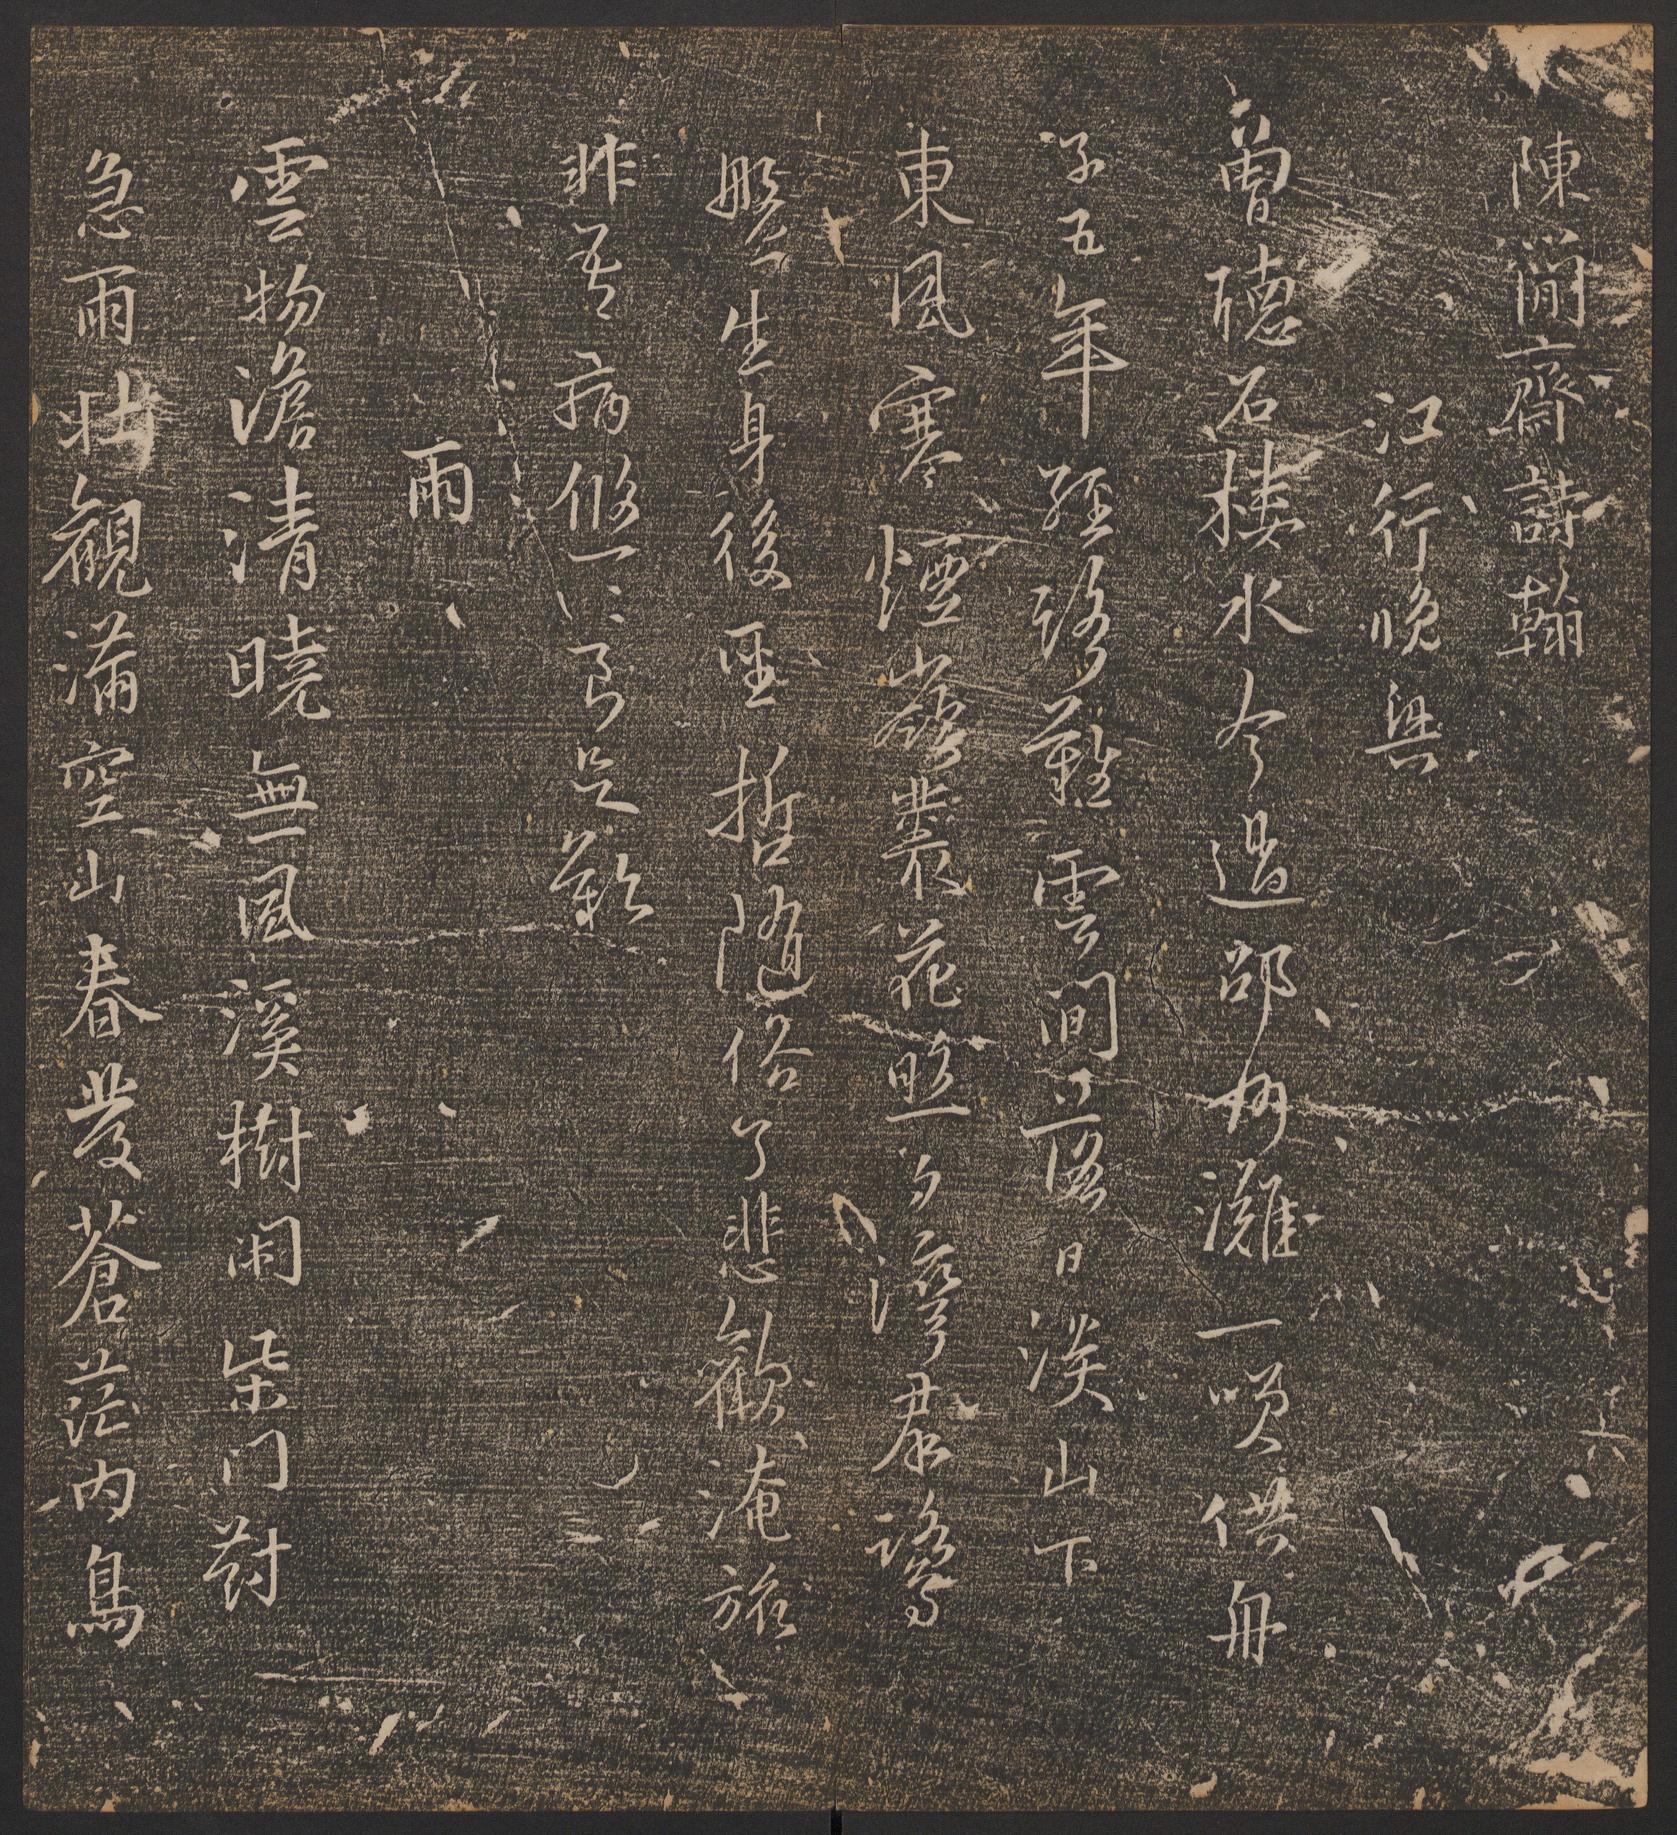 陳簡齋詩翰
江行晚興
曾聽石樓水今過邵州灘一笑供舟
子五年經路難雲間落日淡山下
東風寒煙嶺叢花照夕灣羣鷺
盤生身後聖哲隨俗了悲歡淹旅
非吾病悠悠良足歎
雨
雲物澹清曉無風溪樹閑柴門對
急雨壯觀滿空山春發蒼茫內鳥